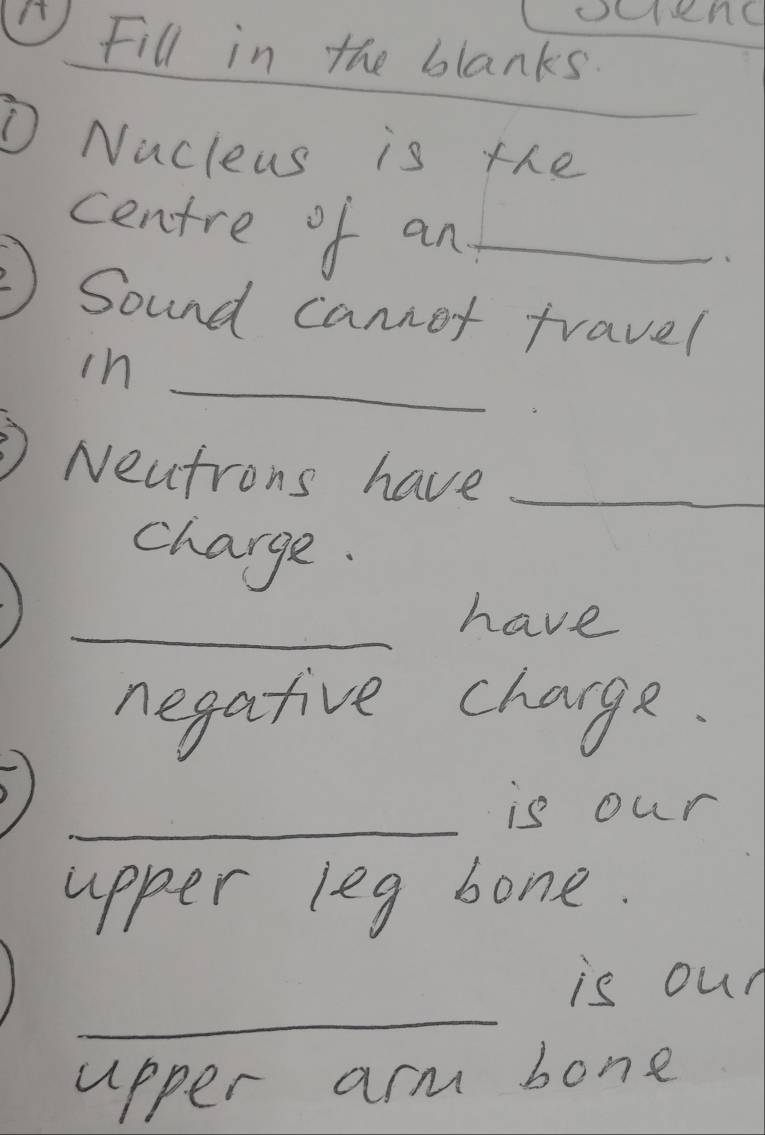 A
Fill in the blanks.
① Nucleus is the
centre of an ______.
Sound cannot travel
in ______.
Neutrons have ______
charge.
______ have
negative charge.
5) ______ is our
upper leg bone.
______ is our
upper arm bone